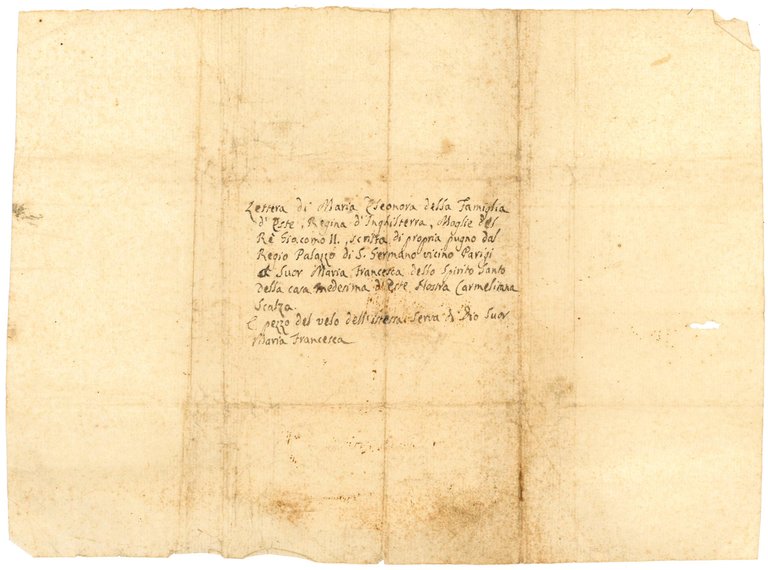 Lettera di Maria Eleonora della Famiglia
d'Este, Regina d'Inghilterra, Moglie del
Rè Giacomo II., scritta di propria pugno dal
Regio Palazzo di S. Germano vicino Parigi
a Suor Maria Francesca dello Spirito Santo
della casa medesima d'Este Nostra Carmelitana
Scalza.
E pezzo del velo dell'istessa Serva di Dio Suor
Maria Francesca